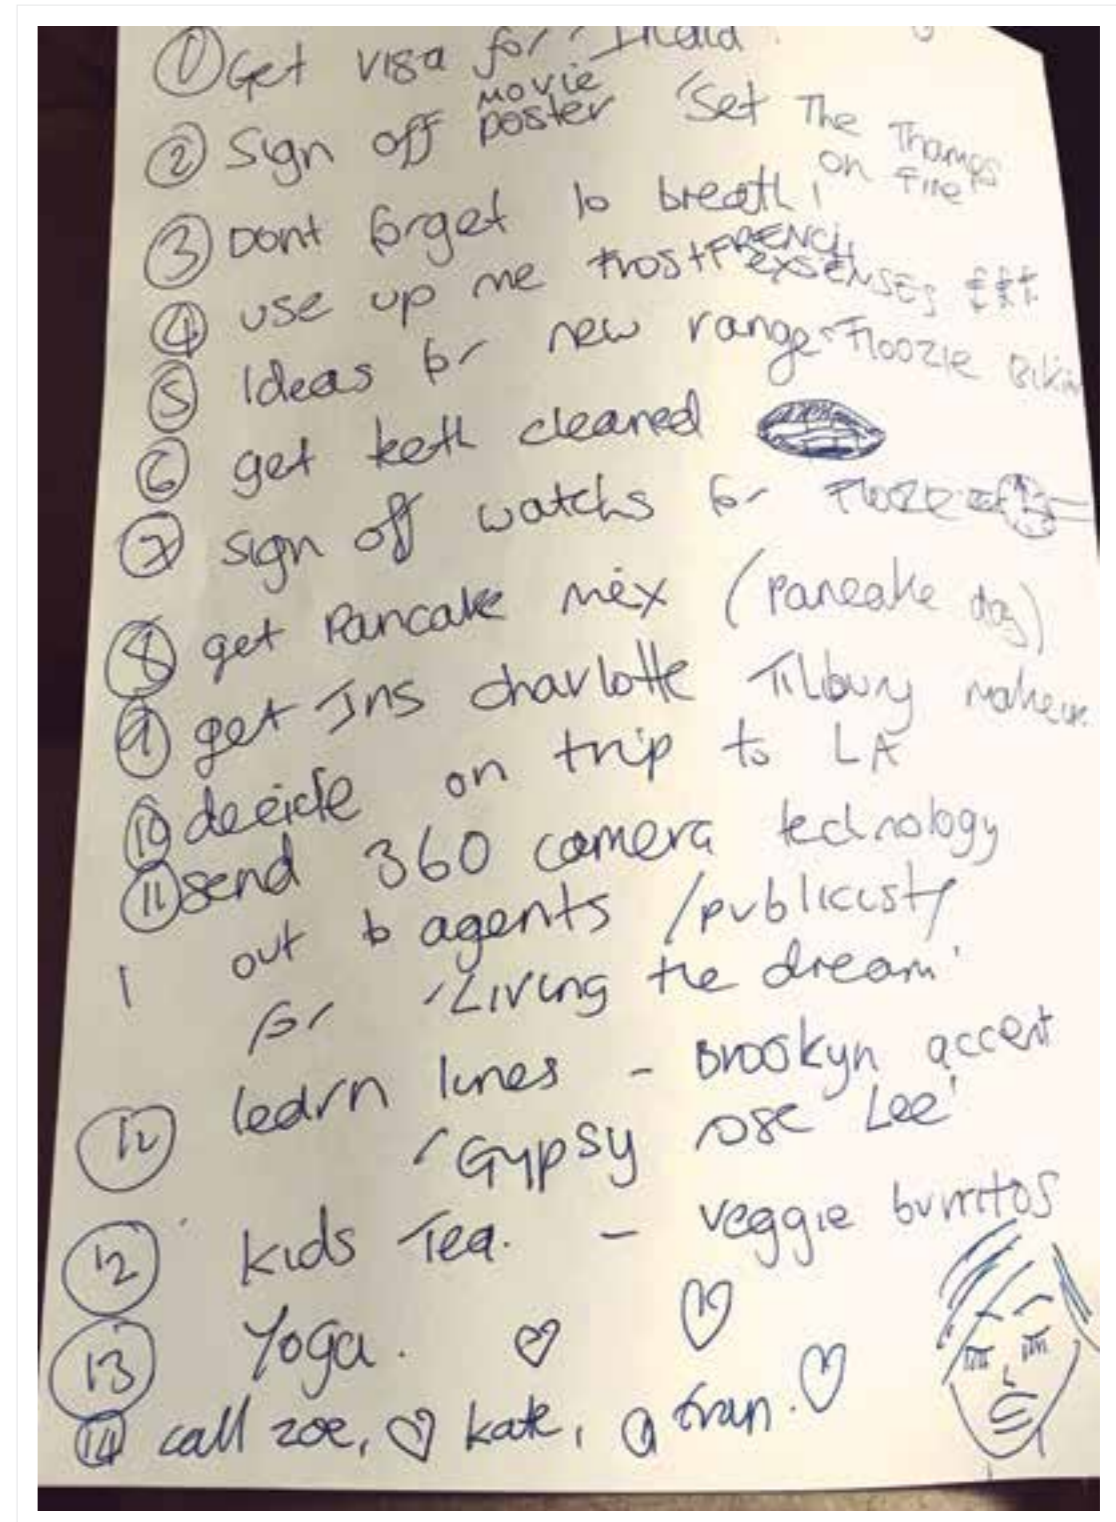 ① Get visa for India.
② Sign off movie poster 'Set The Thames on Fire'
③ Dont forget to breath!
④ use up me FRENCH EXSENSES £££
⑤ Ideas for new range - Floozie Bikin
⑥ get teeth cleaned
⑦ sign off watchs for
⑧ get Pancake mix (pancake day)
⑨ get Jns charlotte Tilbury makeup
⑩ decide on trip to LA
⑪ send 360 camera technology
out to agents / publicist/
for 'Living the dream'
⑫ learn lines - Brookyn accent
'Gypsy ose Lee'
⑫ kids Tea. - veggie burritos
⑬ Yoga.
⑭ call zoe, kate, fran.